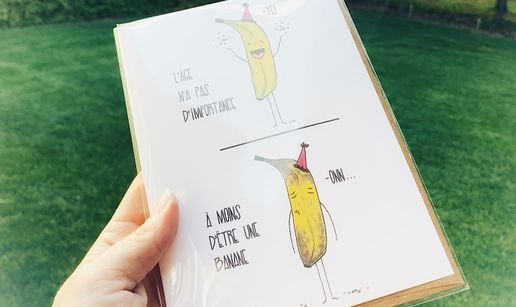 -YO
L'ÂGE
N'A PAS
D'IMPORTANCE
-OHH...
À MOINS
D'ÊTRE UNE
BANANE